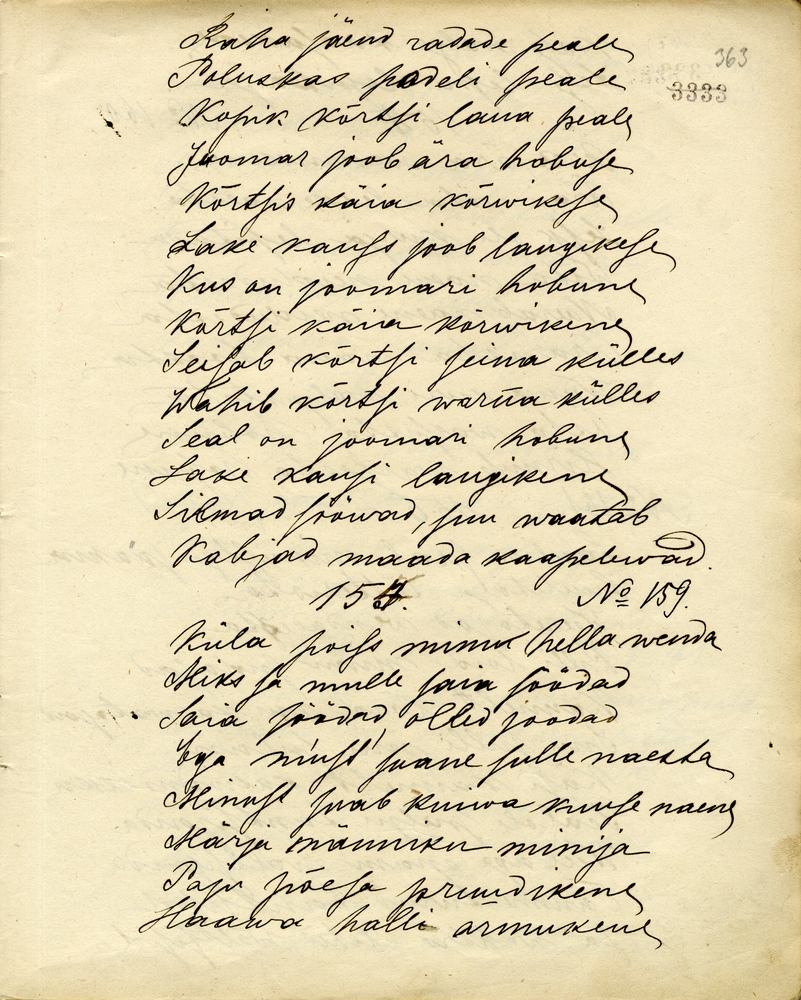 363
3333
Raha jäend radade peale
Poluskas padeli peale
Kopik kõrtsi laua peale
Joomar joob ära hobuse
Kõrtsis käia kõrwikese
Lake kauss joob laugikese
Kus on joomari hobune
Kõrtsi käia kõrwikene
Seisab kõrtsi seina külles
Wahib kõrtsi warna külles
Seal on joomari hobune
Lake kausi laugikene
Silmad söövad, suu waatab
Kabjad maada kaapelewad.
157. No 159.
Küla poiss minu hella wenda
Miks sa mulle saia söödad
Saia söödad, õlled joodad
Ega minust saane sulle naesta
Minust saab kuiwa kuuse naene
Märja männiku minija
Paju põesa pruudikene
Haawa halli armukene